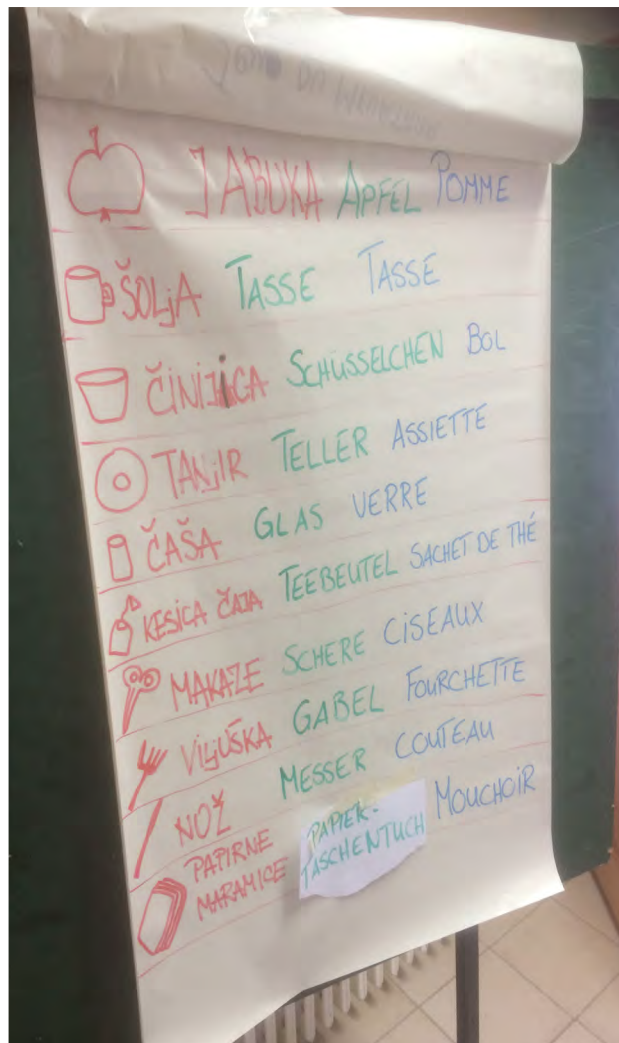 JABUKA APFEL POMME
ŠOLjA TASSE TASSE
ČINIJICA SCHÜSSELCHEN BOL
TANjIR TELLER ASSIETTE
ČAŠA GLAS VERRE
KESICA ČAJA TEEBEUTEL SACHET DE THÉ
MAKAZE SCHERE CISEAUX
VILjUŠKA GABEL FOURCHETTE
NOŽ MESSER COUTEAU
PAPIRNE MARAMICE PAPIER-TASCHENTUCH MOUCHOIR